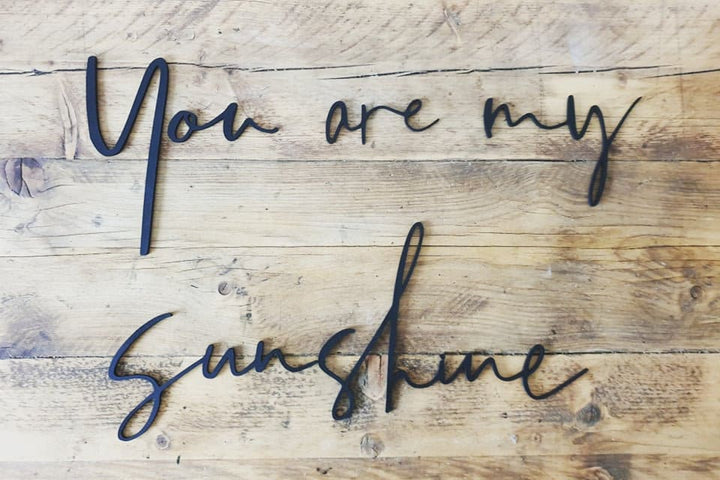 You are my
sunshine